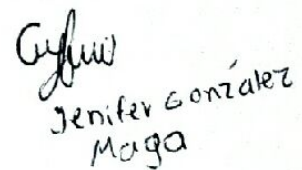 Jenifer Gonzalez
Maga